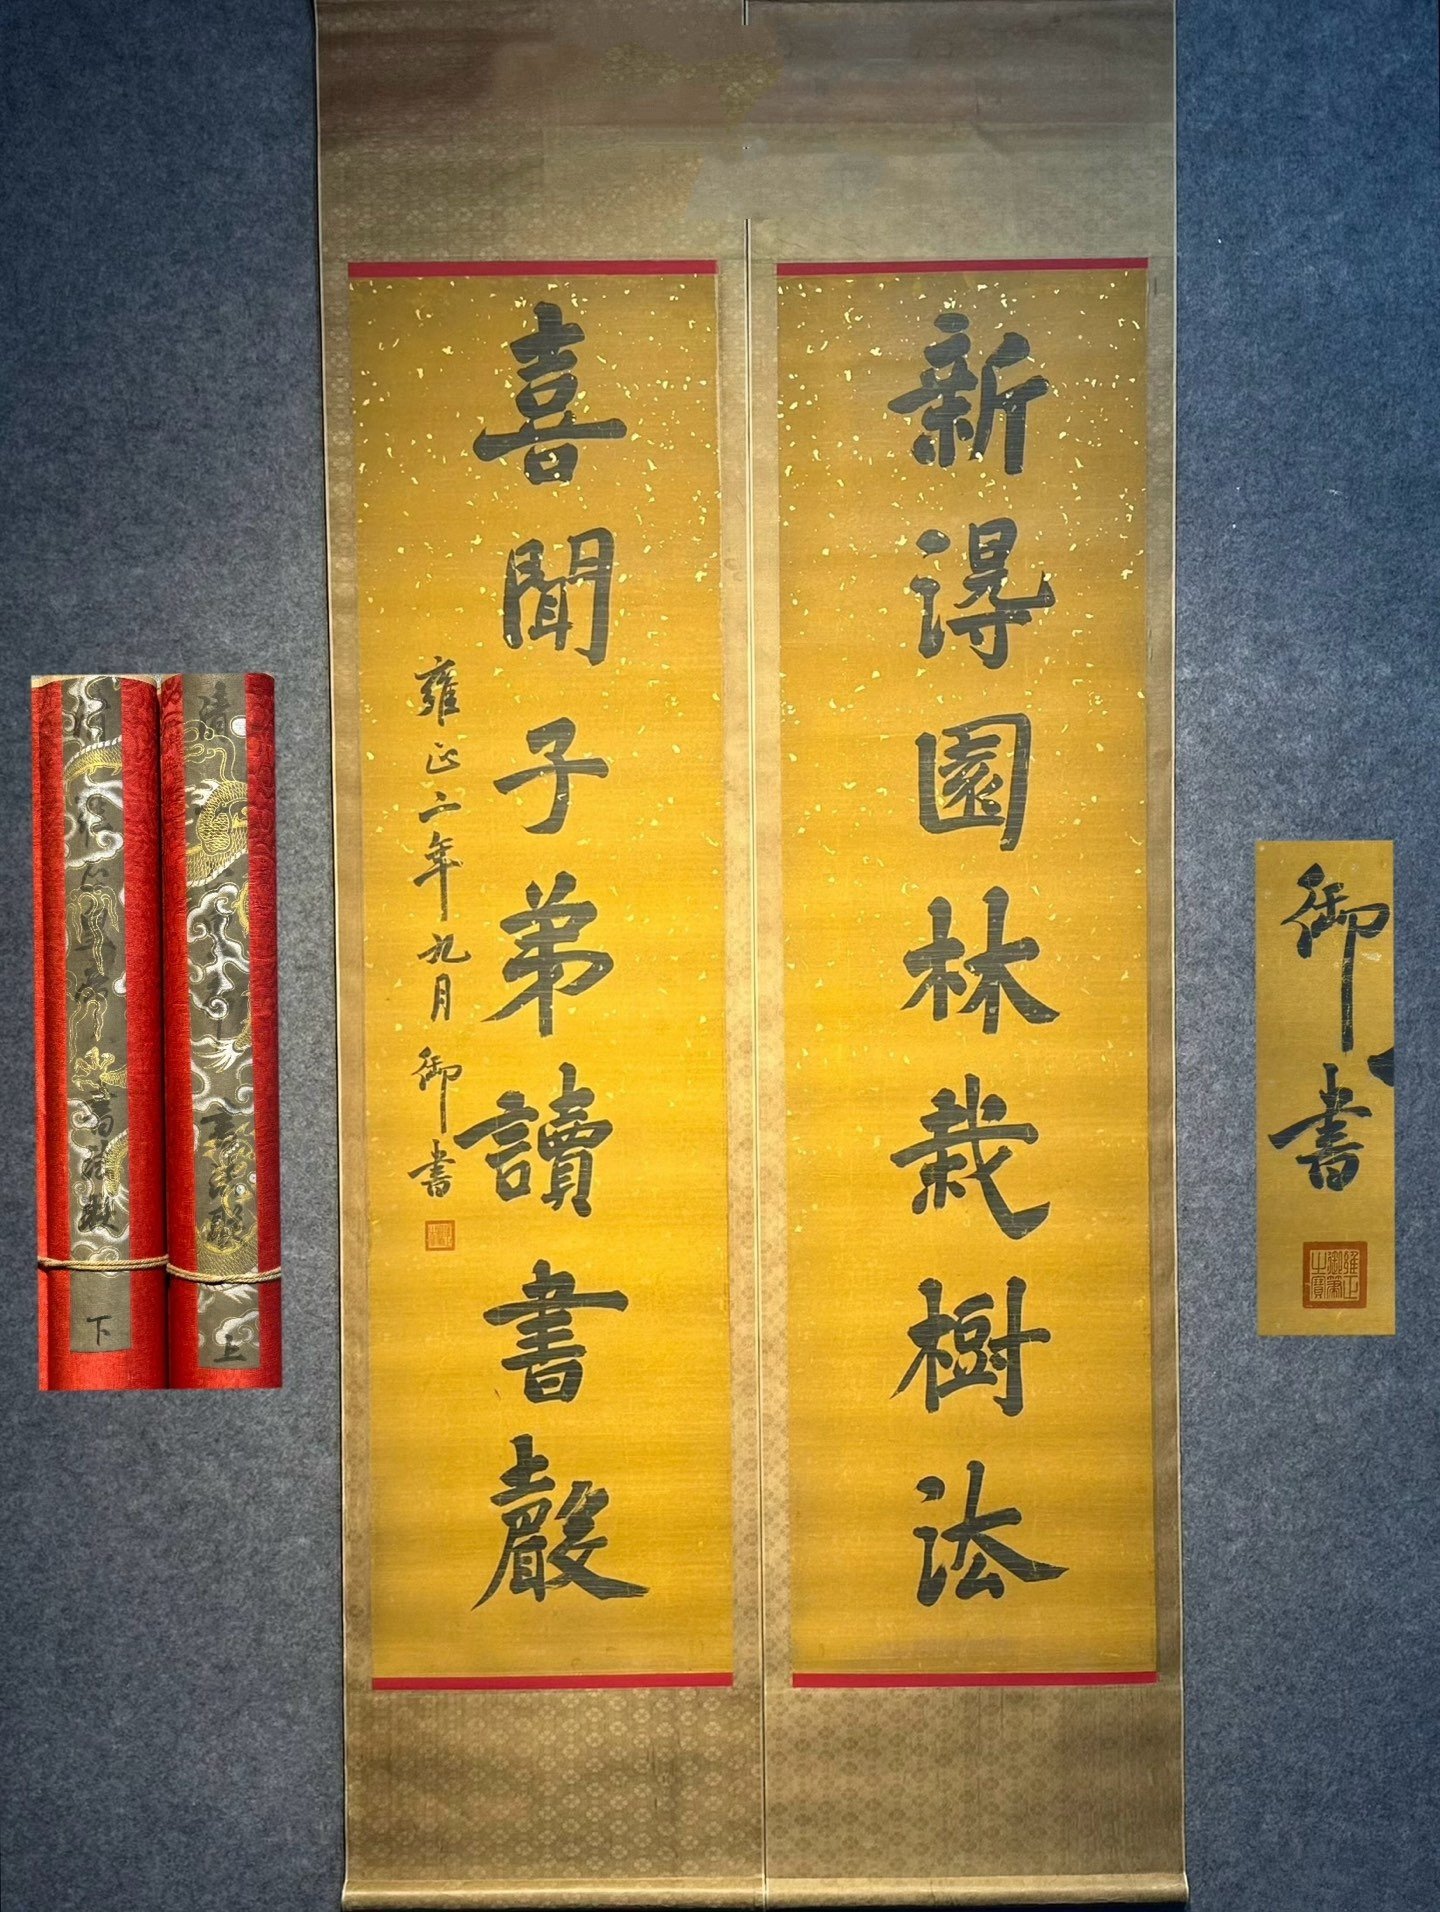 新得園林栽樹法
喜聞子弟讀書聲
雍正二年九月 御書
御書
雍正
御筆
之寶
清
書法對
上
下